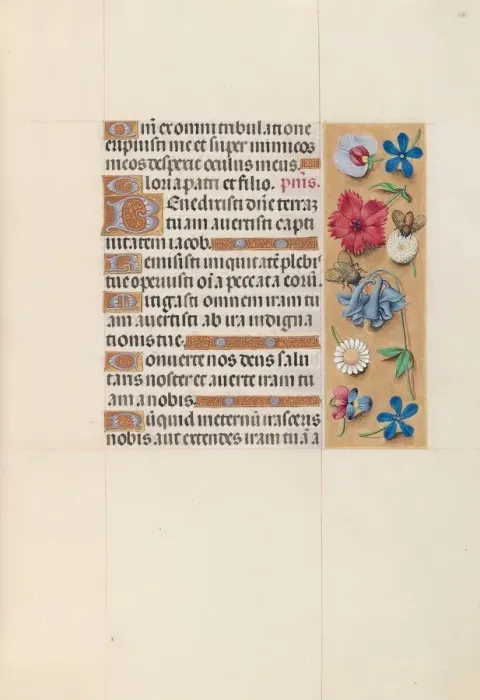 Qm̄ ex omni tribulatione
eripuisti me et super inimicos
meos despexit oculus meus.
Gloria patri et filio. ps̄us.
Benedixisti dn̄e terrā
tuam avertisti capti
vitatem iacob.
Remisisti iniquitatē plebis
tue operuisti oīa peccata eorū.
Mitigasti omnem iram tu
am avertisti ab ira indigna
tionis tue.
Converte nos deus salu
taris noster et averte iram tu
am a nobis.
Nūquid in eternū irasceris
nobis aut extendes iram tuā a